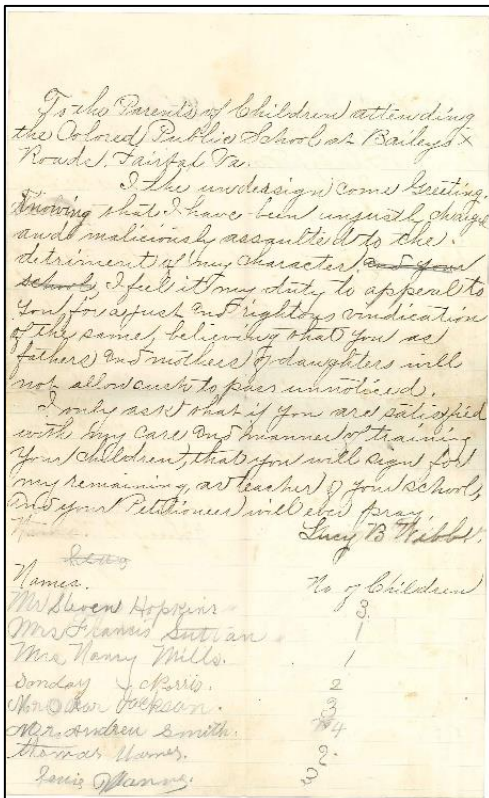 To the Parents of Children attending
the Colored Public School at Baileys X
Roads. Fairfax Va.
I the undersign come Greeting.
Knowing that I have been unjustly charged
and maliciously assaulted to the
detriment of my character. and your
school, I feel it my duty to appeal to
you, for a just and rightous vindication
of the same, believing that you as
fathers and mothers of daughters will
not allow such to pass unnoticed.
I only ask that if you are satisfied
with my care and manner of training
your children, that you will sign for
my remaining, as teacher of your school,
and your Petitioner will ever pray
Lucy B
Names. No. of Children
Mr Steven Hopkins 3.
Mrs Francis Suttan 1
Mrs Nanny Mills. 1
Sonday Norris. 2
Mr Oscar Jackson. 3
Mr. Andrew Smith. 4
thomas 2.
3